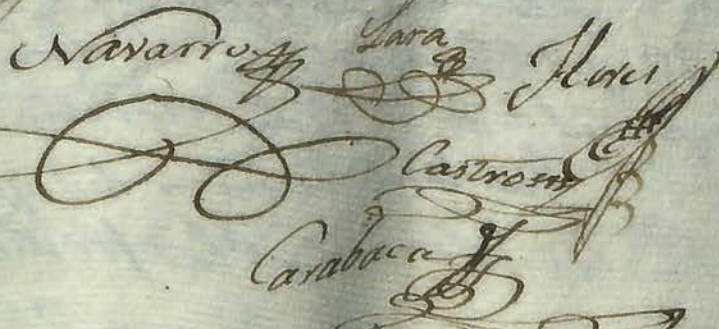 Navarro Lara Flores
Castro
Carabaca